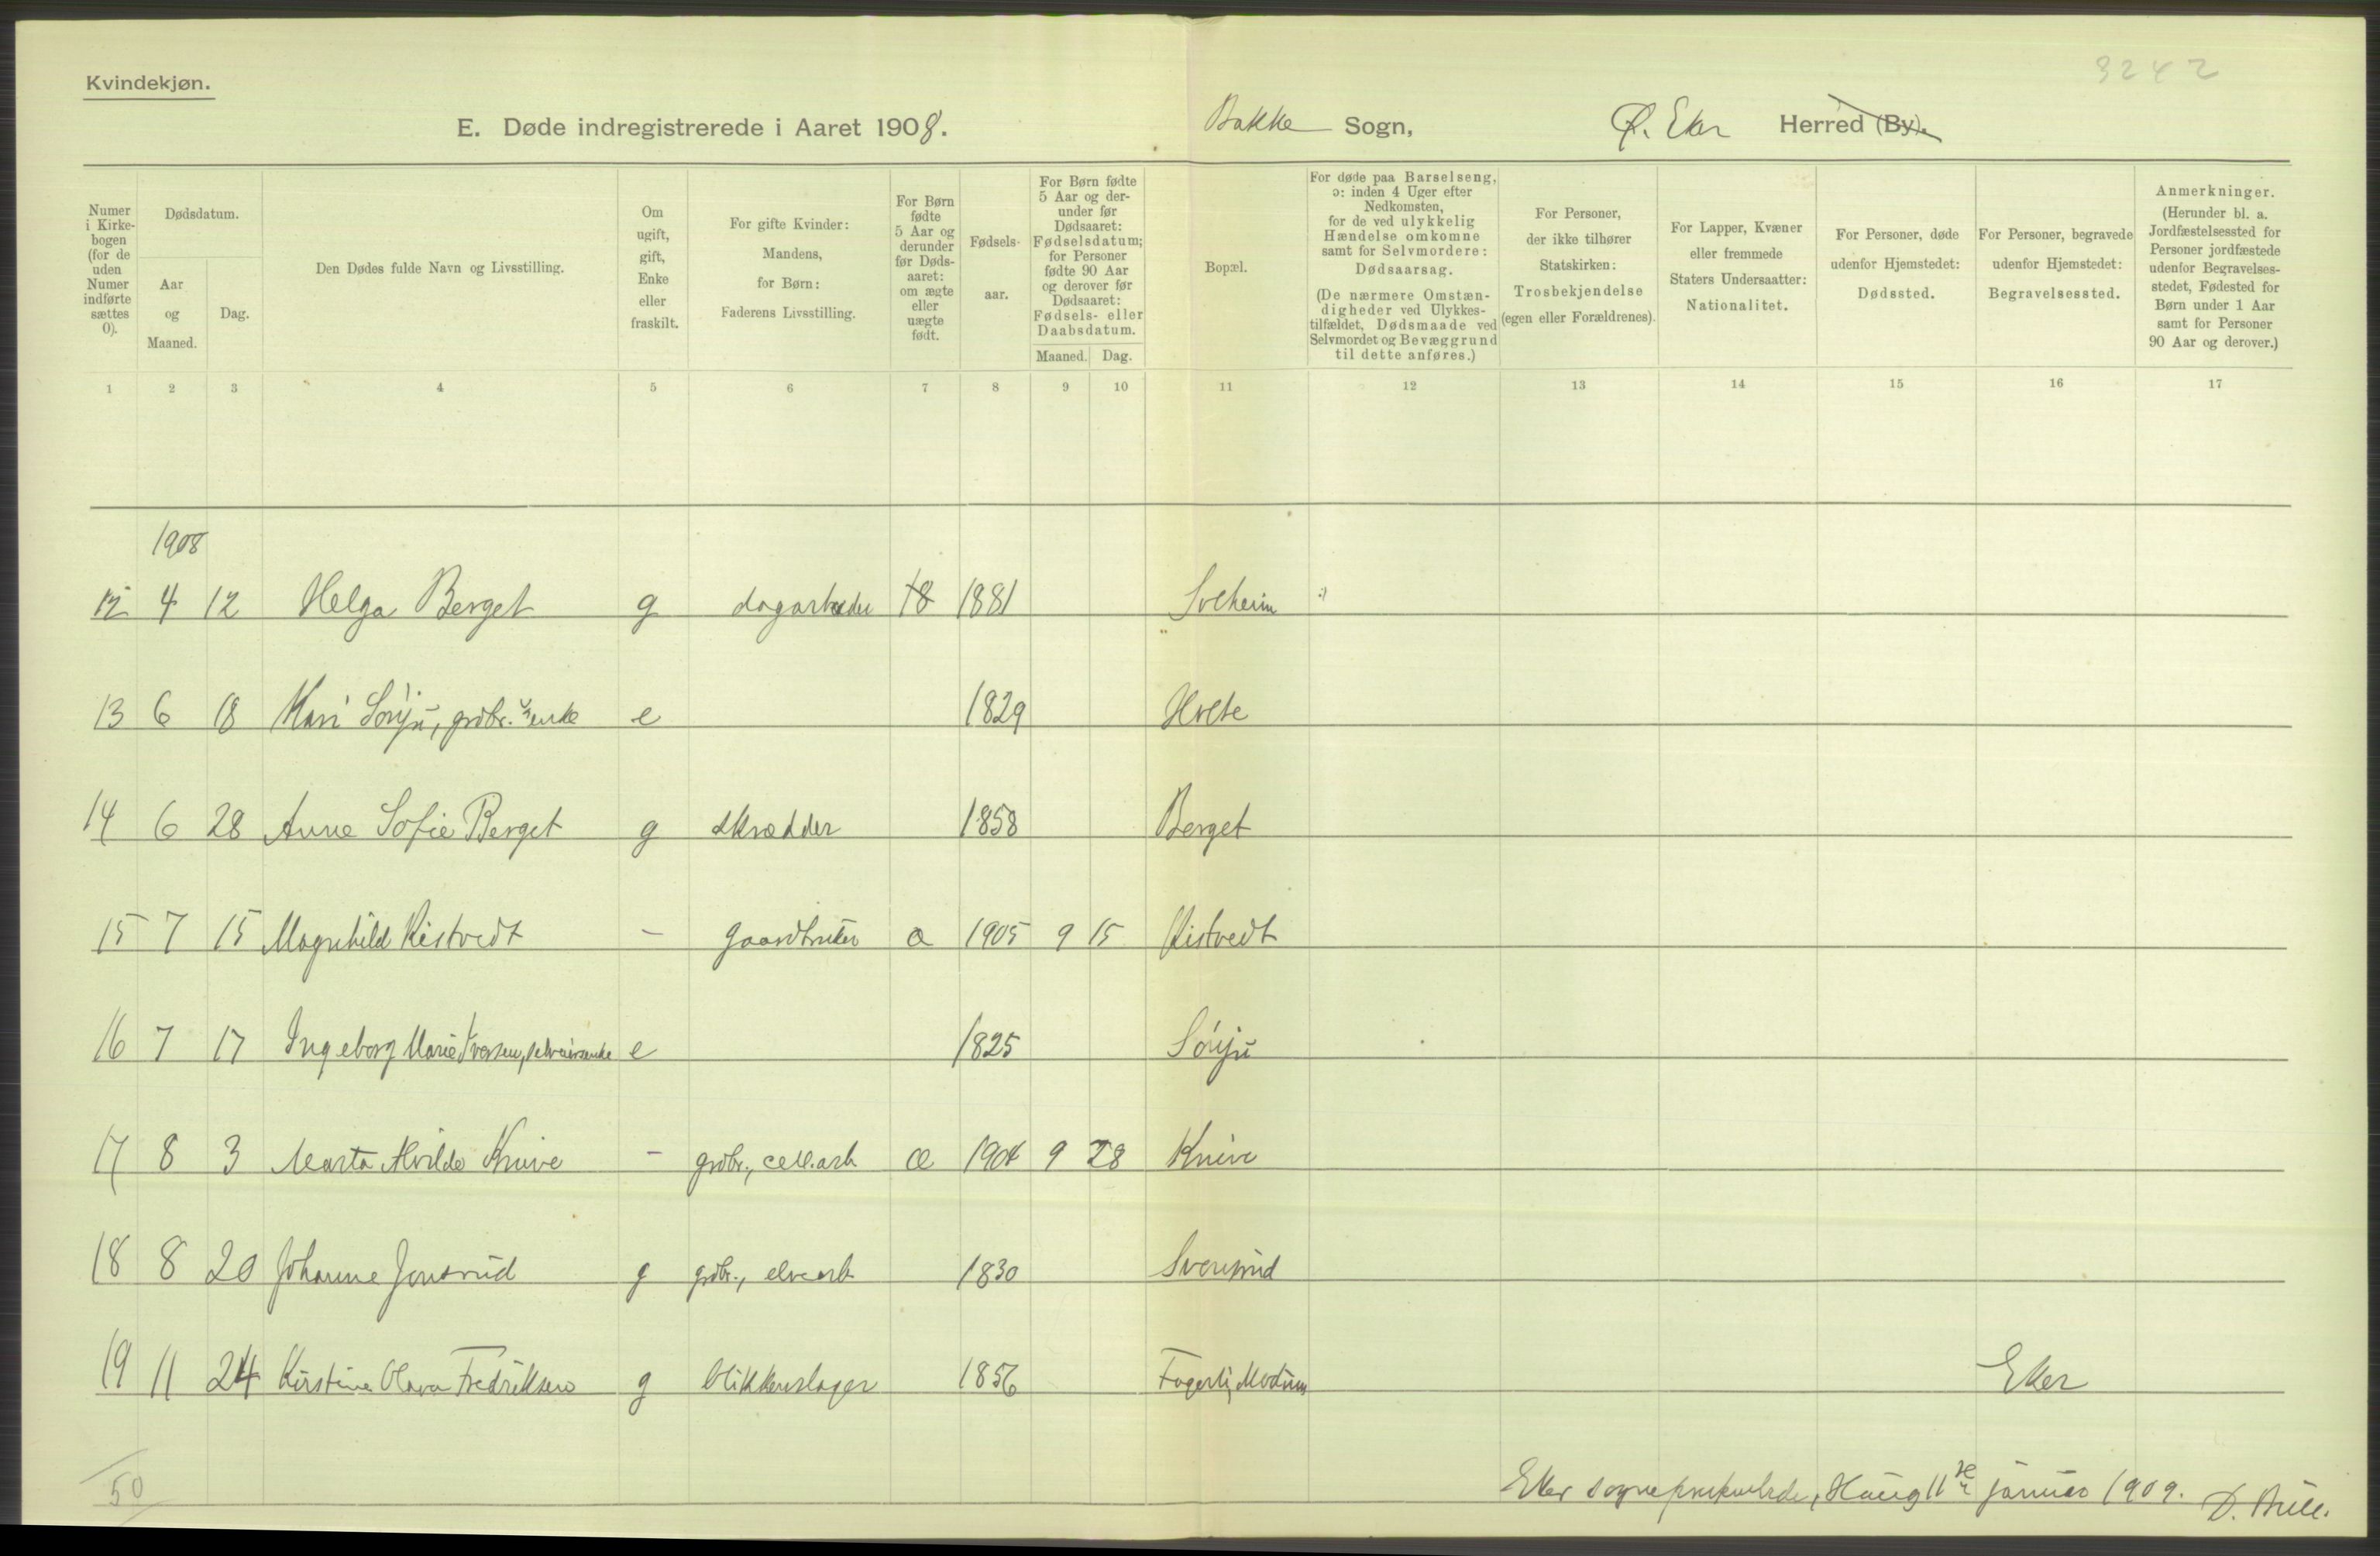 3242
Kvindekjøn.
E. Døde indregistrerede i Aaret 1908. Bakke Sogn, Ø. Eker Herred (By).
Numer i Kirke-bogen (for de uden Numer indførte sættes 0).
Dødsdatum.
Aar og Maaned.
Dag.
Den Dødes fulde Navn og Livsstilling.
Om ugift, gift, Enke eller fraskilt.
For gifte Kvinder: Mandens, for Børn: Faderens Livsstilling.
For Børn fødte 5 Aar og derunder før Døds-aaret: om ægte eller uægte født.
Fødsels-aar.
For Børn fødte 5 Aar og der-under før Dødsaaret: Fødselsdatum; for Personer fødte 90 Aar og derover før Dødsaaret: Fødsels- eller Daabsdatum.
Maaned. Dag.
Bopæl.
For døde paa Barselseng, ɔ: inden 4 Uger efter Nedkomsten, for de ved ulykkelig Hændelse omkomne samt for Selvmordere: Dødsaarsag.
(De nærmere Omstæn-digheder ved Ulykkes-tilfældet, Dødsmaade ved Selvmordet og Bevæggrund til dette anføres.)
For Personer, der ikke tilhører Statskirken: Trosbekjendelse (egen eller Forældrenes).
For Lapper, Kvæner eller fremmede Staters Undersaatter: Nationalitet.
For Personer, døde udenfor Hjemstedet: Dødssted.
For Personer, begravede udenfor Hjemstedet: Begravelsessted.
Anmerkninger. (Herunder bl. a. Jordfæstelsessted for Personer jordfæstede udenfor Begravelses-stedet, Fødested for Børn under 1 Aar samt for Personer 90 Aar og derover.)
1 2 3 4 5 6 7 8 9 10 11 12 13 14 15 16 17
1908
12 4 12 Helga Berget g dagarbeider 18 1881 Solheim
13 6 18 Kari Sønju, grdbr. enke e 1829 Holte
14 6 28 Anne Sofie Berget g skrædder 1858 Berget
15 7 15 Magnhild Kistvedt - gaardbruker æ 1905 9 15 Kistvedt
16 7 17 Ingeborg Marie Iversen, selveierenke e 1825 Sønju
17 8 3 Marta Alvilde Knive - grdbr., cell.arb æ 1904 9 28 Knive
18 8 20 Johanne Jonsrud g grdbr., elvearb 1830
19 11 24 Kirstine Olava Fredriksen g blikkenslager 1856 Fagerli, Modum Eker
50
Eker sogneprestembede, Haug 11 januar 1909. D. Bull.